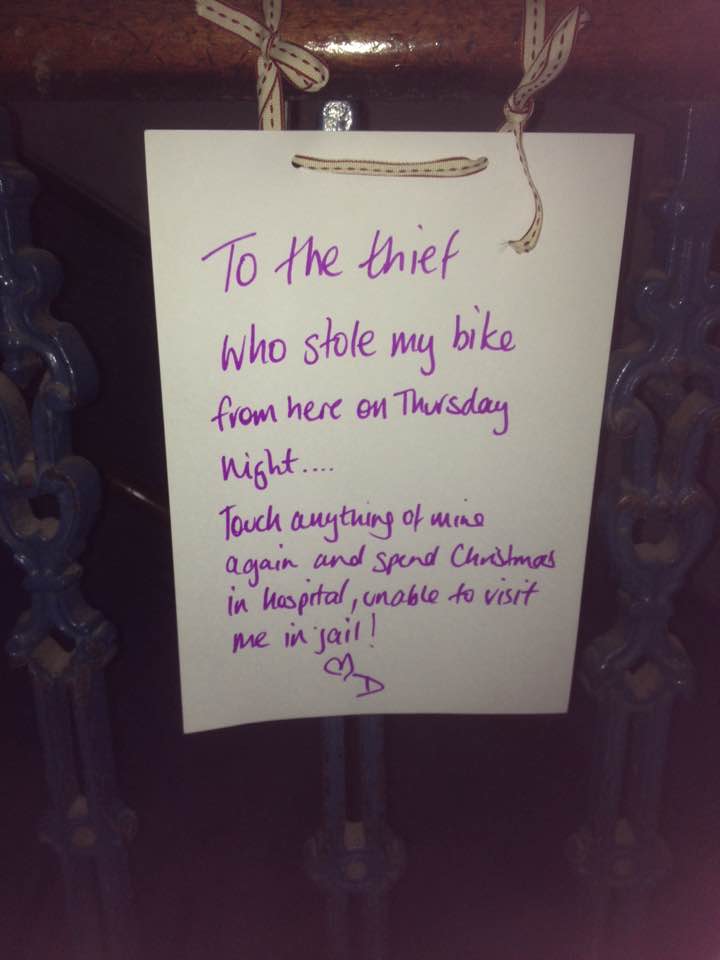 To the thief
Who stole my bike
from here on Thursday
night....
Touch anything of mine
again and spend Christmas
in hospital, unable to visit
me in jail!
♡D